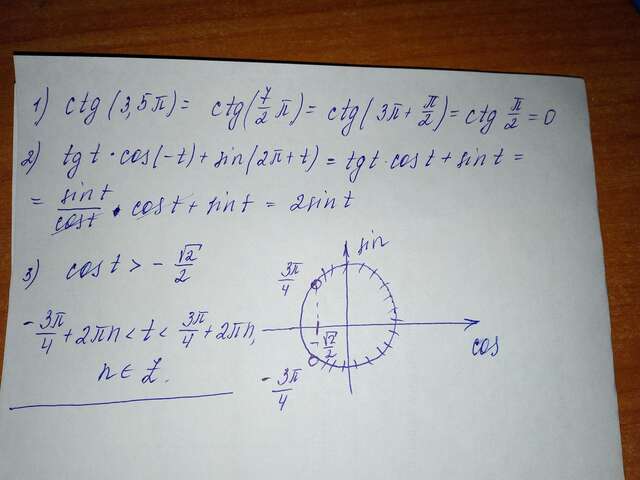 1) ctg(3,5π) = ctg(7/2 π) = ctg(3π + π/2) = ctg π/2 = 0
2) tg t · cos(-t) + sin(2π + t) = tg t · cos t + sin t =
= sin t / cos t · cos t + sin t = 2 sin t
3) cos t > - √2/2
- 3π/4 + 2πn < t < 3π/4 + 2πn,
n ∈ Z.
sin
3π/4
- √2/2
cos
- 3π/4